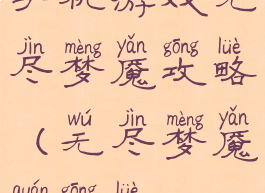 手机游戏无
jìn mèng yǎn gōng lüè
尽梦魇攻略
wú jìn mèng yǎn
（无尽梦魇
quán gōng lüè